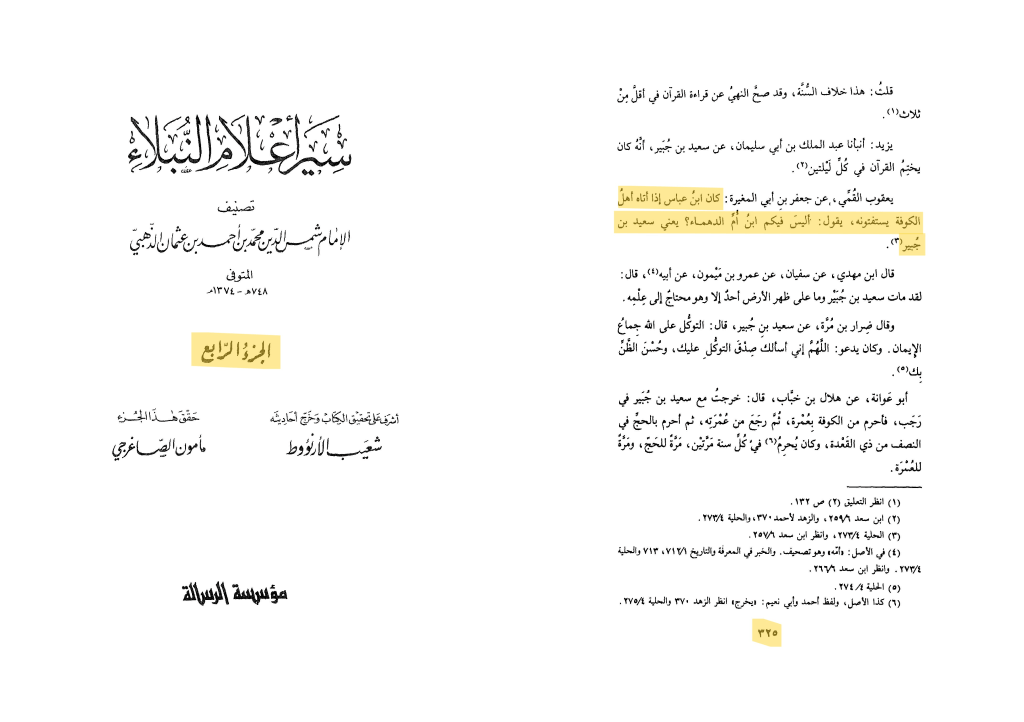 سير أعلام النبلاء
تصنيف
الإمام شمس الدين محمد بن أحمد بن عثمان الذهبي
المتوفى
٧٤٨هـ - ١٣٧٤مـ
الجزء الرابع
أشرف على تحقيق الكتاب وخرج أحاديثه
شعيب الأرنؤوط
حقق هذا الجزء
مأمون الصاغرجي
مؤسسة الرسالة
قلتُ: هذا خلاف السُّنَّة، وقد صحَّ النهيُ عن قراءة القرآن في أقلَّ مِنْ
ثلاث(١).
يزيد: أنبأنا عبد الملك بن أبي سليمان، عن سعيد بن جُبَير، أنَّهُ كان
يختِمُ القرآن في كُلِّ لَيْلتين(٢).
يعقوب القُمِّي، عن جعفر بنِ أبي المغيرة: كان ابنُ عباس إذا أتاه أهلُ
الكوفة يستفتونه، يقول: أليسَ فيكم ابنُ أُمِّ الدهماء؟ يعني سعيد بن
جُبير(٣).
قال ابن مهدي، عن سفيان، عن عمرو بن مَيْمون، عن أبيه(٤)، قال:
لقد مات سعيد بن جُبَيْر وما على ظهر الأرض أحدٌ إلا وهو محتاجٌ إلى عِلْمِه.
وقال ضِرار بن مُرَّة، عن سعيد بنِ جُبير، قال: التوكُّل على الله جِماعُ
الإيمان. وكان يدعو: اللَّهُمَّ إني أسألك صِدْقَ التوكُّلِ عليك، وحُسْنَ الظَّنِّ
بِك(٥).
أبو عَوانة، عن هلال بن خبَّاب، قال: خرجتُ مع سعيد بن جُبَير في
رَجَب، فأحرم من الكوفة بِعُمْرة، ثُمَّ رجَعَ من عُمْرَتِه، ثم أحرم بالحجِّ في
النصف من ذي القَعْدة، وكان يُحرِمُ(٦) في كُلِّ سنة مَرَّتَيْن، مَرَّةً للحَجّ، ومَرَّةً
للعُمْرَة.
(١) انظر التعليق (٢) ص ١٣٢.
(٢) ابن سعد ٢٥٩/٦، والزهد لأحمد ٣٧٠، والحلية ٢٧٣/٤.
(٣) الحلية ٢٧٣/٤، وانظر ابن سعد ٢٥٧/٦.
(٤) في الأصل: «أمّه» وهو تصحيف. والخبر في المعرفة والتاريخ ٧١٢/١، ٧١٣ والحلية
٢٧٣/٤. وانظر ابن سعد ٢٦٦/٦.
(٥) الحلية ٢٧٤/٤.
(٦) كذا الأصل، ولفظ أحمد وأبي نعيم: «يخرج» انظر الزهد ٣٧٠ والحلية ٢٧٥/٤.
٣٢٥